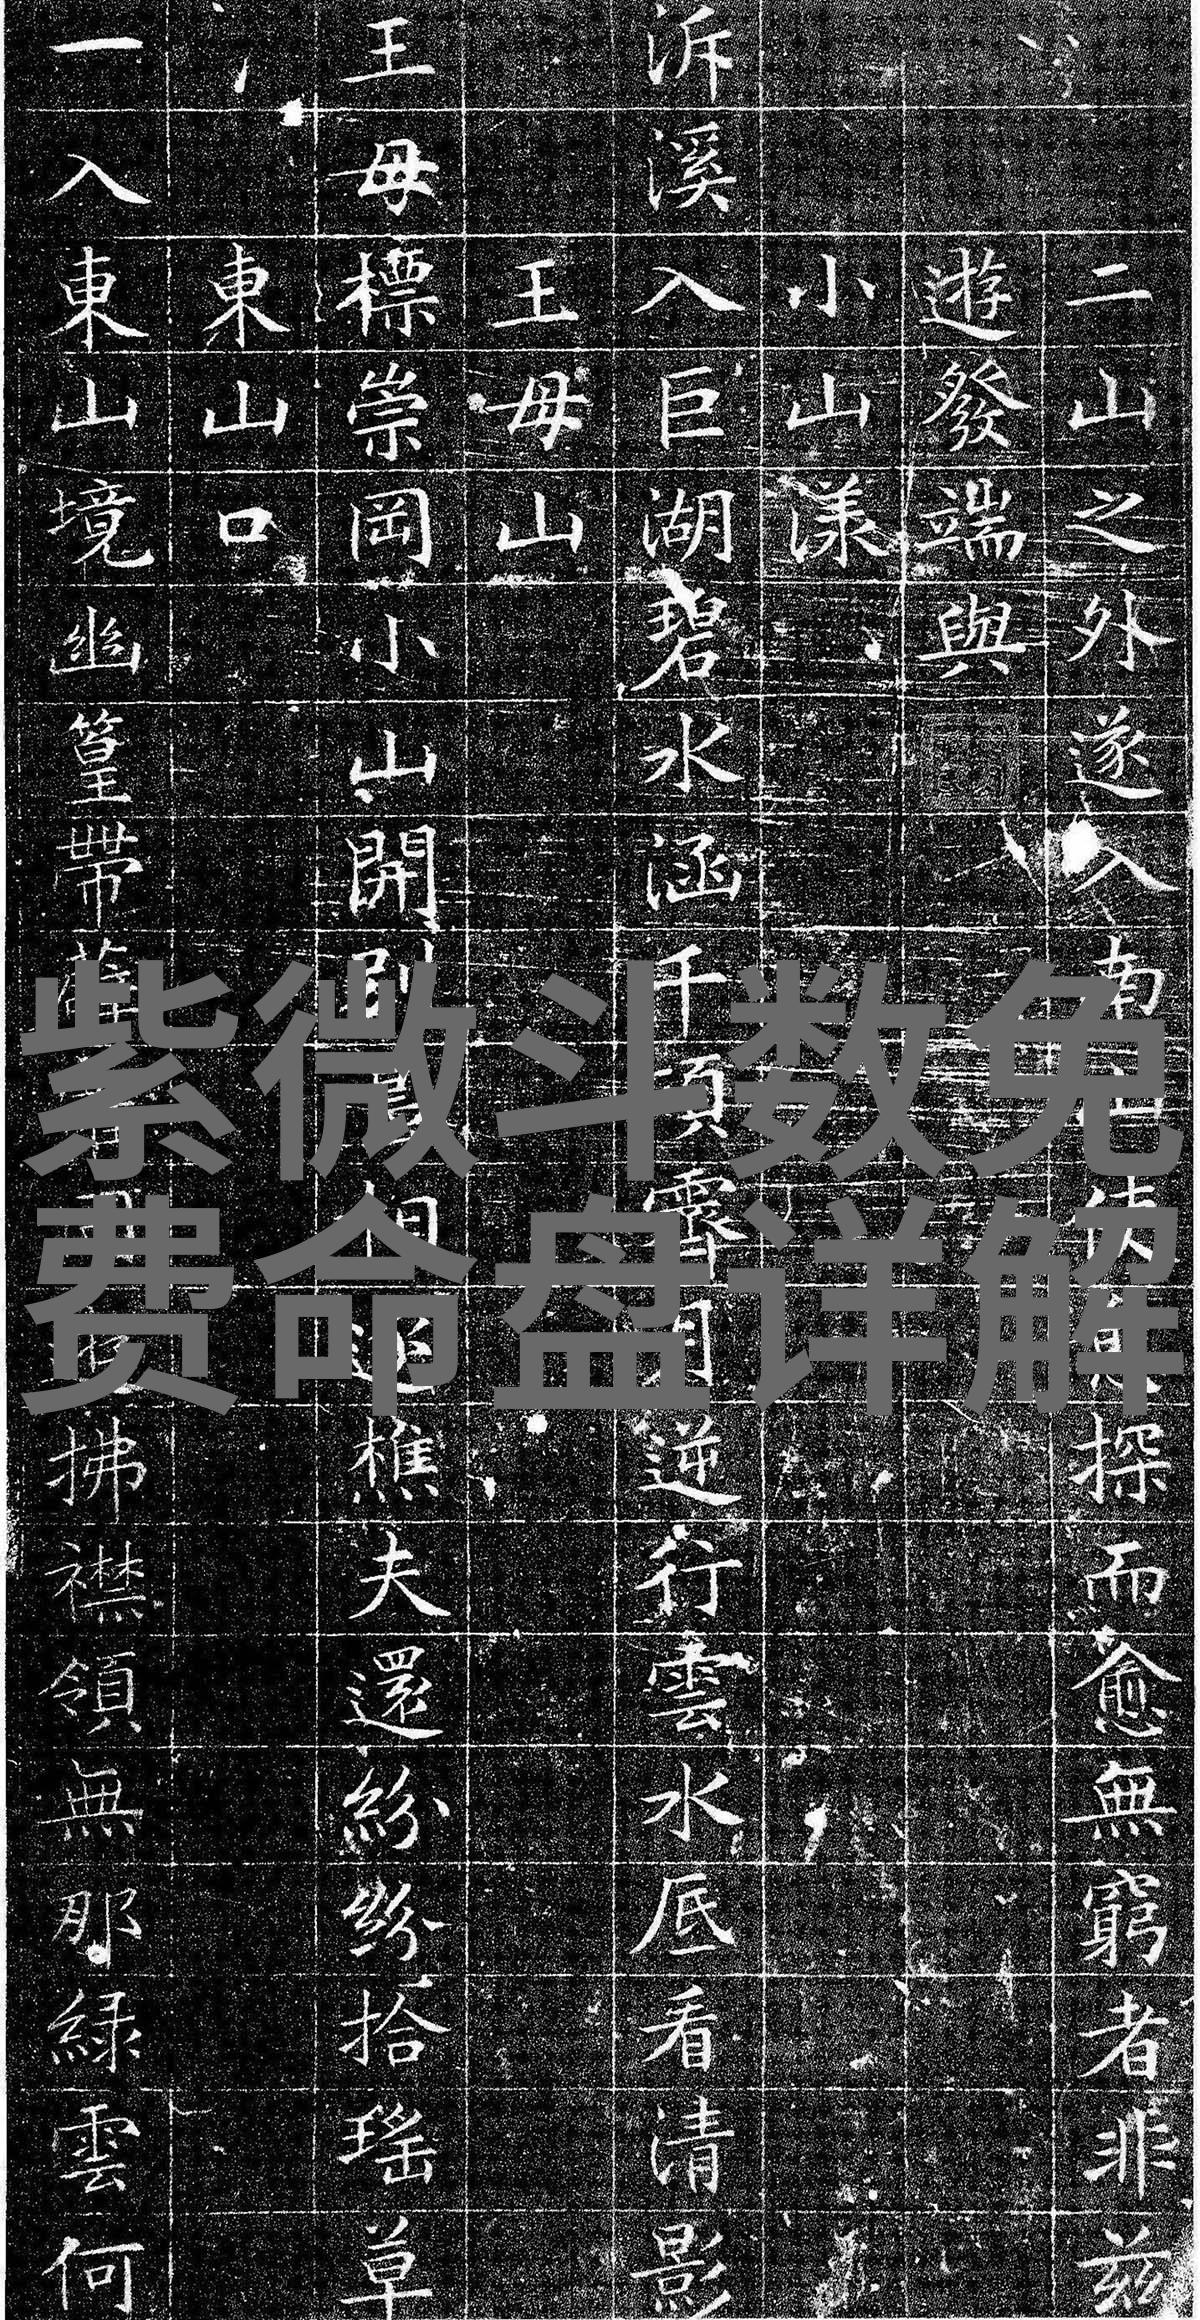 二山之外遂入南山探而愈無窮者非茲
遊發端與
小山漾
泝溪入巨湖碧水涵千頃霽月逆行雲水底看清影
王母山
王母標崇岡小山開別相樵夫還紛紛拾瑤草
東山口
一入東山境幽篁帶拂襟領無那綠雲何
紫微斗数免
费命盘详解